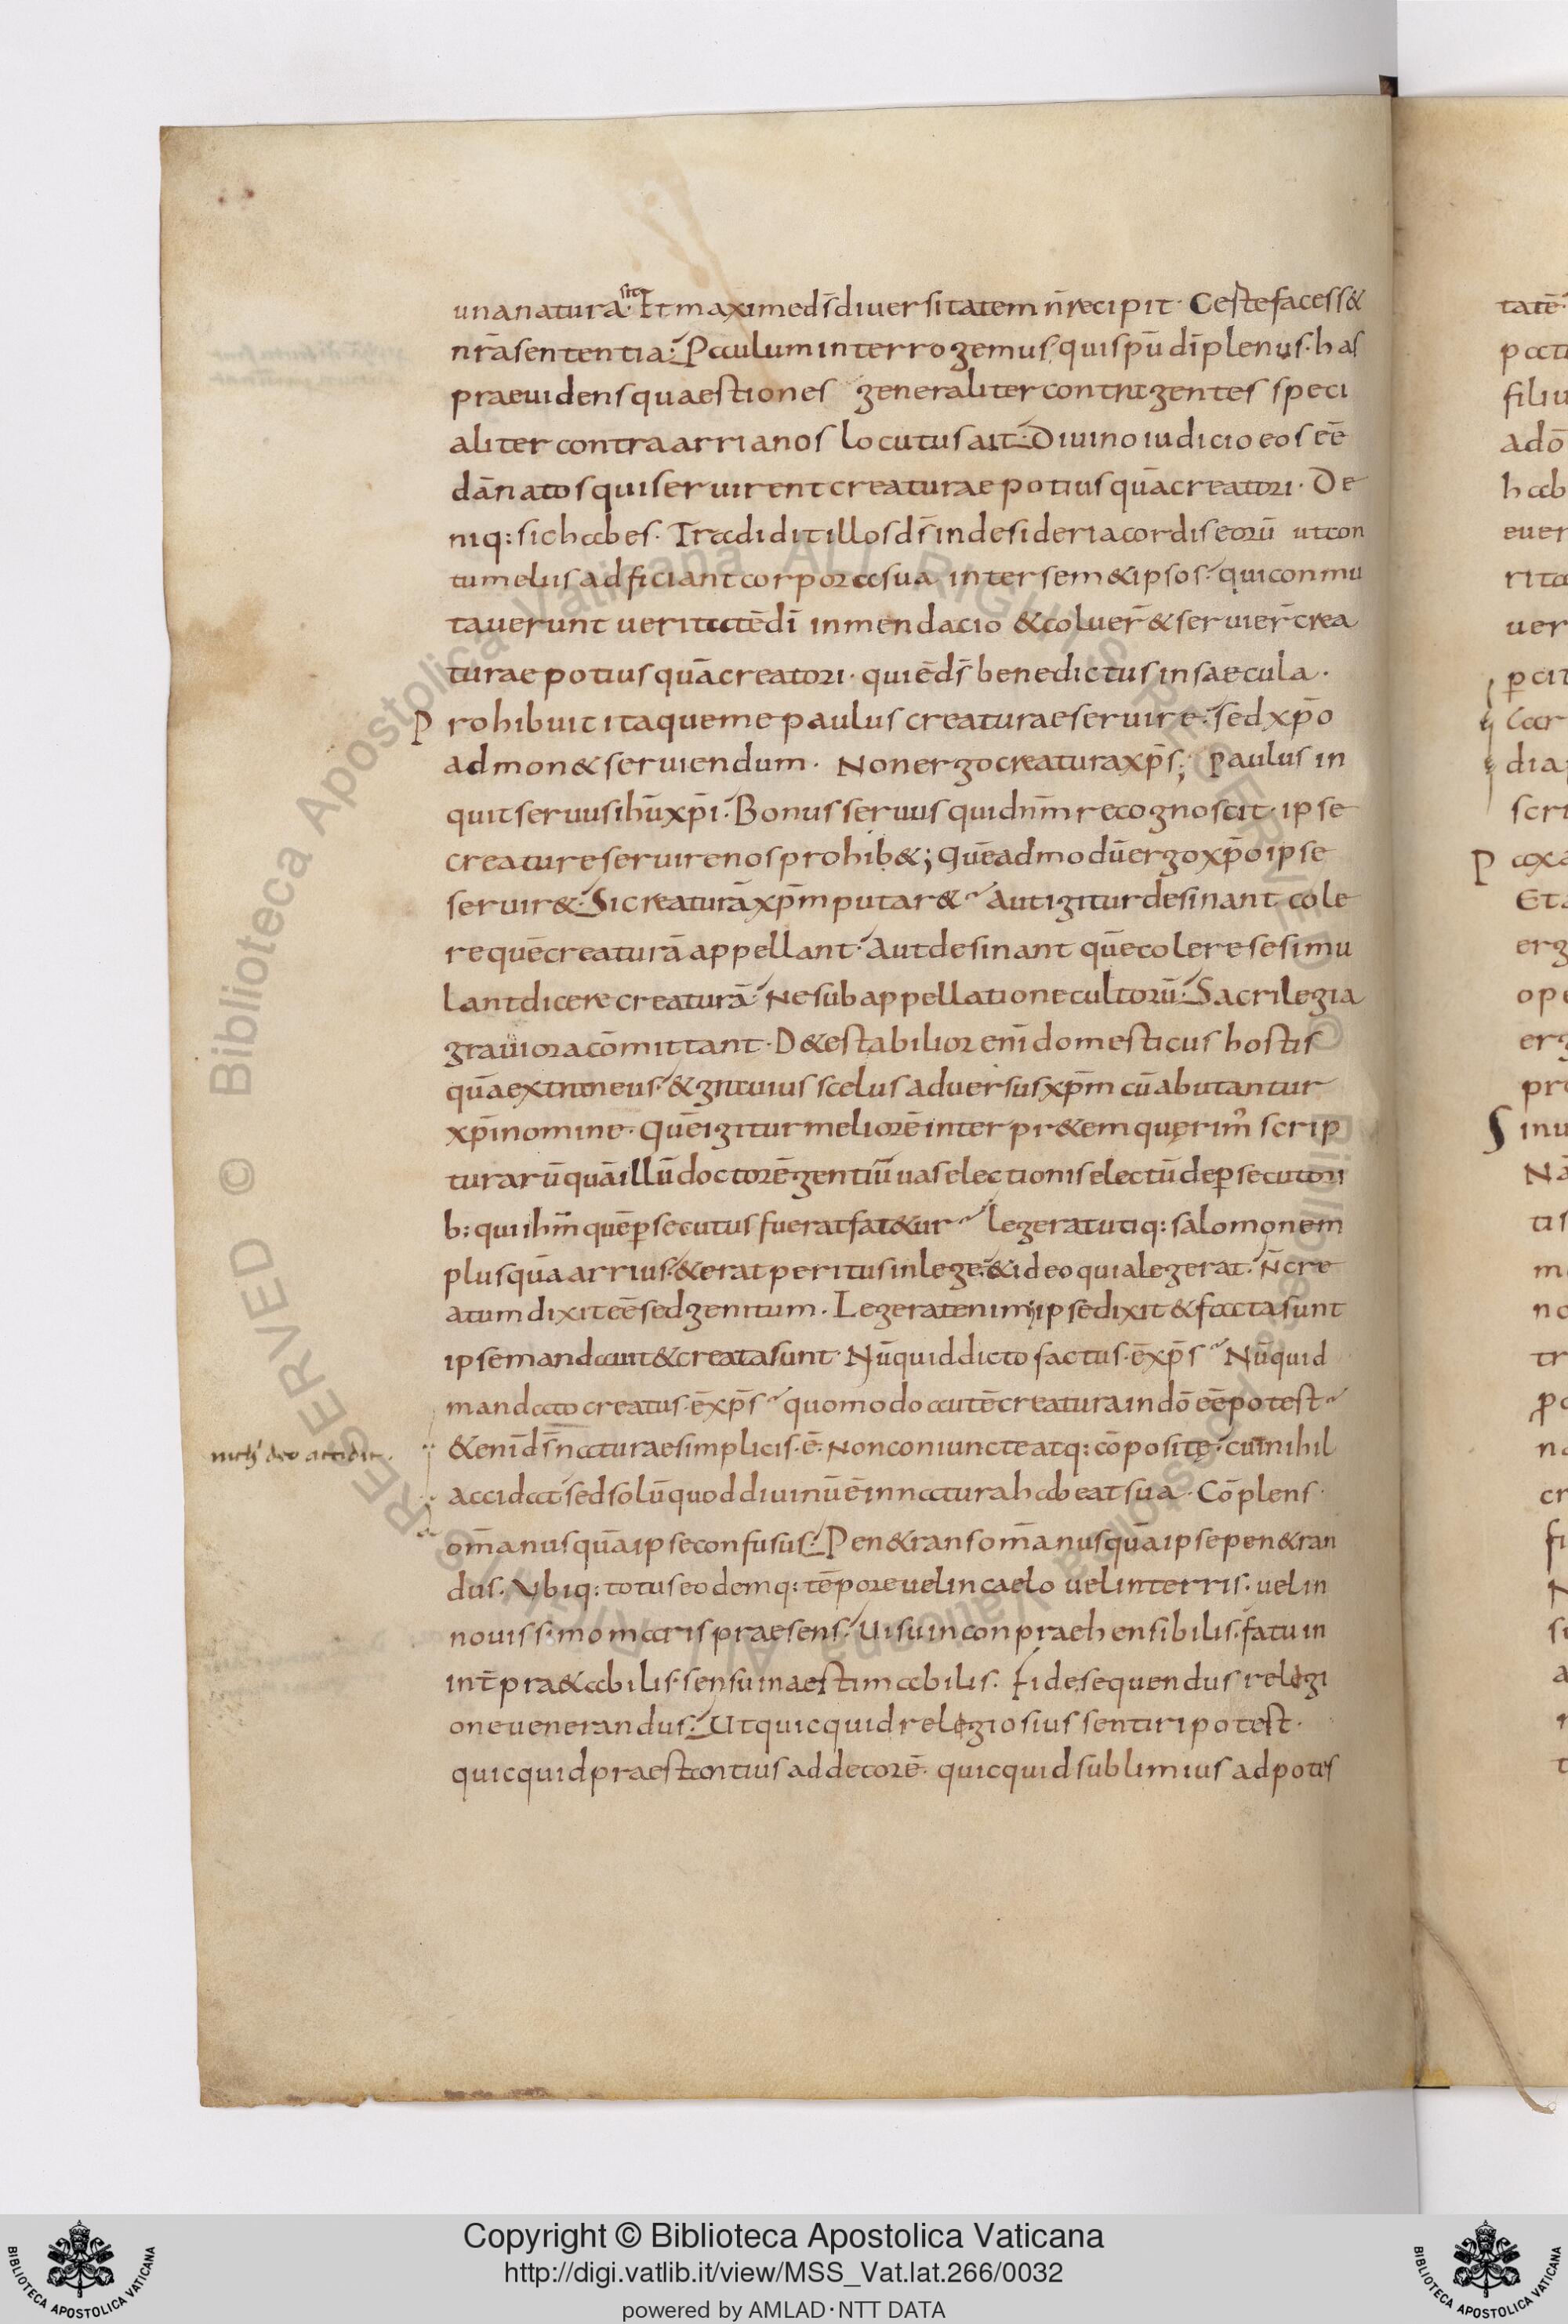 una natura sit. Et maxime ds̄ diuersitatem n̄ recipit. Ceste facess&
nr̄a sententia. Paulum interrogemus. qui spū dī plenus. has
praeuidens quaestiones generaliter contra gentes speci
aliter contra arrianos locutus ait. Diuino iudicio eos eē
dānatos qui seruirent creaturae potius quā creatori. De
niq: sic habes. Tradidit illos ds̄ in desideria cordis eorū ut con
tumeliis adficiant corpora sua inter sem&ipsos. qui conmu
tauerunt ueritatē dī in mendacio & coluer̄ & seruier̄ crea
turae potius quā creatori. qui ē ds̄ benedictus in saecula.
Prohibuit itaque me paulus creaturae seruire. sed xp̄o
admon& seruiendum. Non ergo creatura xp̄s; Paulus in
quit seruus ihū xp̄i. Bonus seruus qui dnm̄ recognoscit. ipse
creature seruire nos prohib&; Quēadmodū ergo xp̄o ipse
seruir&. Si creaturā xp̄m putar& Aut igitur desinant cole
re quē creaturā appellant. Aut desinant quē colere se simu
lant dicere creaturā. Ne sub appellatione cultorū. Sacrilegia
grauiora cōmittant. D&estabilior enī domesticus hostis
quā extraneus. & grauius scelus aduersus xp̄m cū abutantur
xp̄i nomine. Quē igitur meliorē interpr&em querim᾽ scrip
turarū quā illū doctorē gentiū uas electionis electū de ꝑsecutori
b: qui ihm̄ quē ꝑsecutus fuerat fat&ur Legerat utiq: salomonem
plus quā arrius. & erat peritus in lege. & ideo quia legerat. n̄ cre
atum dixit eē sed genitum. Legerat enim ipse dixit & facta sunt
ipse mandauit & creata sunt. Nūquid dicto factus. ē xp̄s Nūquid
mandato creatus. ē xp̄s quomodo autē creatura in dō eē potest
& enī ds̄ naturae simplicis. ē. Non coniuncte atq: cōposite. cui nihil
nichil deo accidit.
accidat sed solū quod diuinū ē in natura habeat sua. Cōplens
om̄a nusquā ipse confusus. Pen&rans om̄a nusquā ipse pen&ran
dus. Vbiq: totus eodemq: tēpore uel in caelo uel in terris. uel in
nouissimo maris praesens. Uisu inconpraehensibilis. fatu in
int̄pra&abilis. sensu inaestimabilis. Fide sequendus relegi
one uenerandus. Ut quicquid relegiosius sentiri potest.
quicquid praestantius ad decorē. quicquid sublimius ad potes
Copyright © Biblioteca Apostolica Vaticana
http://digi.vatlib.it/view/MSS_Vat.lat.266/0032
powered by AMLAD·NTT DATA